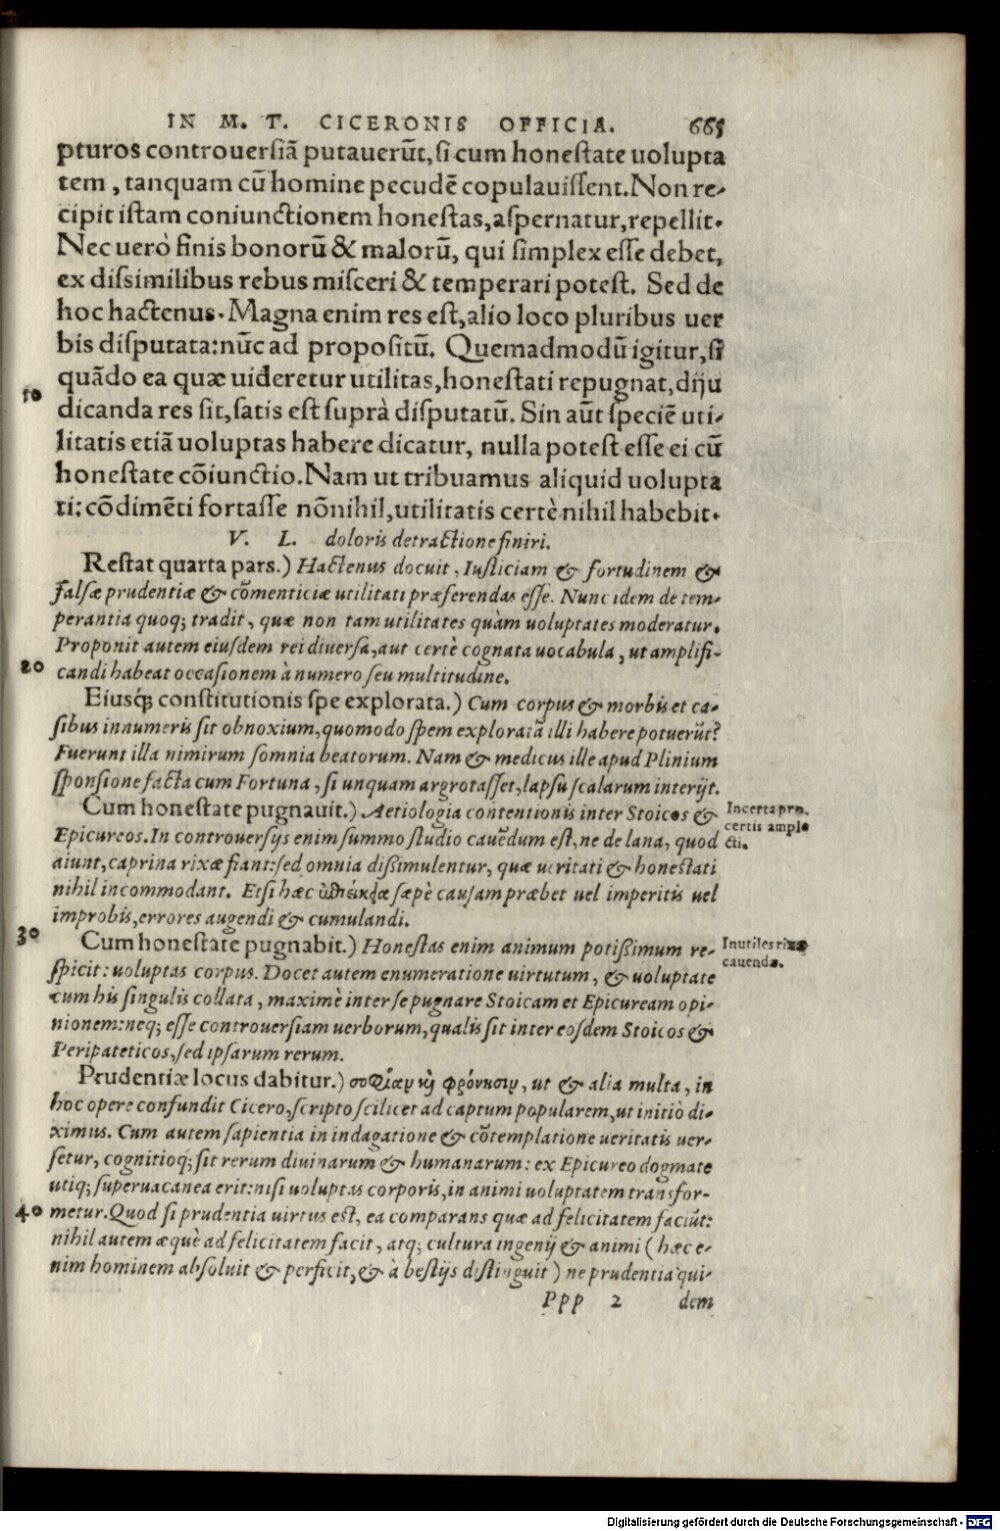 IN M. T. CICERONIS OFFICIA. 665
pturos controuersiã putauerũt, si cum honestate uolupta
tem, tanquam cũ homine pecudẽ copulauissent. Non re-
cipit istam coniunctionem honestas, aspernatur, repellit.
Nec uerò finis bonorũ & malorũ, qui simplex esse debet,
ex dissimilibus rebus misceri & temperari potest. Sed de
hoc hactenus. Magna enim res est, alio loco pluribus uer
bis disputata: nũc ad propositũ. Quemadmodũ igitur, si
quãdo ea quæ uideretur utilitas, honestati repugnat, diju
10
dicanda res sit, satis est suprà disputatũ. Sin aũt speciẽ uti-
litatis etiã uoluptas habere dicatur, nulla potest esse ei cũ
honestate cõiunctio. Nam ut tribuamus aliquid uolupta
ti: cõdimẽti fortasse nõnihil, utilitatis certè nihil habebit.
V. L. doloris detractione finiri.
Restat quarta pars.) Hactenus docuit, Iusticiam & fortudinem &
falsæ prudentiæ & cõmenticiæ utilitati præferendas esse. Nunc idem de tem-
perantia quoq; tradit, quæ non tam utilitates quàm uoluptates moderatur.
Proponit autem eiusdem rei diuersa, aut certè cognata uocabula, ut amplifi-
20 candi habeat occasionem à numero seu multitudine.
Eiusq́; constitutionis spe explorata.) Cum corpus & morbis et ca-
sibus innumeris sit obnoxium, quomodo spem exploratã illi habere potuerũt?
Fuerunt illa nimirum somnia beatorum. Nam & medicus ille apud Plinium
sponsione facta cum Fortuna, si unquam argrotasset, lapsu scalarum interijt.
Cum honestate pugnauit.) Aetiologia contentionis inter Stoicos &
Incerta pro
certis ample
cti.
Epicureos. In controuersijs enim summo studio cauẽdum est, ne de lana, quod
aiunt, caprina rixæ fiant: sed omnia dissimulentur, quæ ueritati & honestati
nihil incommodant. Etsi hæc sæpè causam præbet uel imperitis uel
improbis, errores augendi & cumulandi.
30
Cum honestate pugnabit.) Honestas enim animum potissimum re-
Inutiles rixæ
cauendæ.
spicit: uoluptas corpus. Docet autem enumeratione uirtutum, & uoluptate
cum his singulis collata, maximè inter se pugnare Stoicam et Epicuream opi-
nionem: neq; esse controuersiam uerborum, qualis sit inter eosdem Stoicos &
Peripateticos, sed ipsarum rerum.
Prudentiæ locus dabitur.) σοφίαν καὶ φρόνησιν, ut & alia multa, in
hoc opere confundit Cicero, scripto scilicet ad captum popularem, ut initiò di-
ximus. Cum autem sapientia in indagatione & cõtemplatione ueritatis uer-
setur, cognitioq; sit rerum diuinarum & humanarum: ex Epicureo dogmate
utiq; superuacanea erit: nisi uoluptas corporis, in animi uoluptatem transfor-
40 metur. Quod si prudentia uirtus est, ea comparans quæ ad felicitatem faciũt:
nihil autem æquè ad felicitatem facit, atq; cultura ingenij & animi (hæc e-
nim hominem absoluit & perficit, & à bestijs distinguit) ne prudentia qui-
Ppp 2 dem
Digitalisierung gefördert durch die Deutsche Forschungsgemeinschaft - DFG